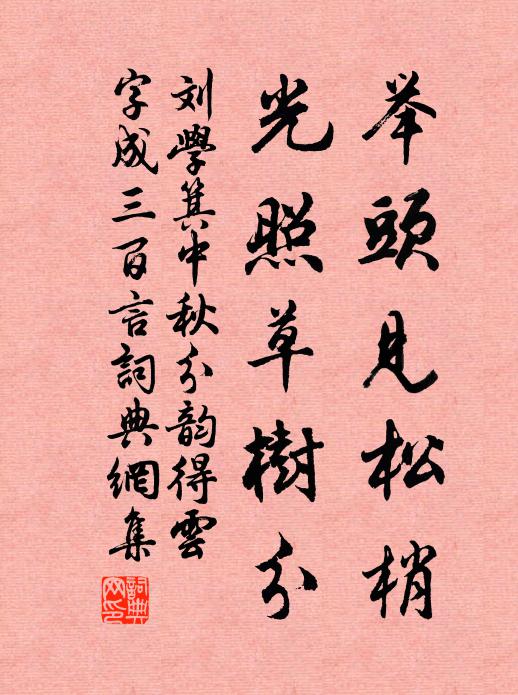 举頭見松梢
光照草樹分
刘學箕中秋分韵得雲
字成三百言詞典網集
詞典
网印